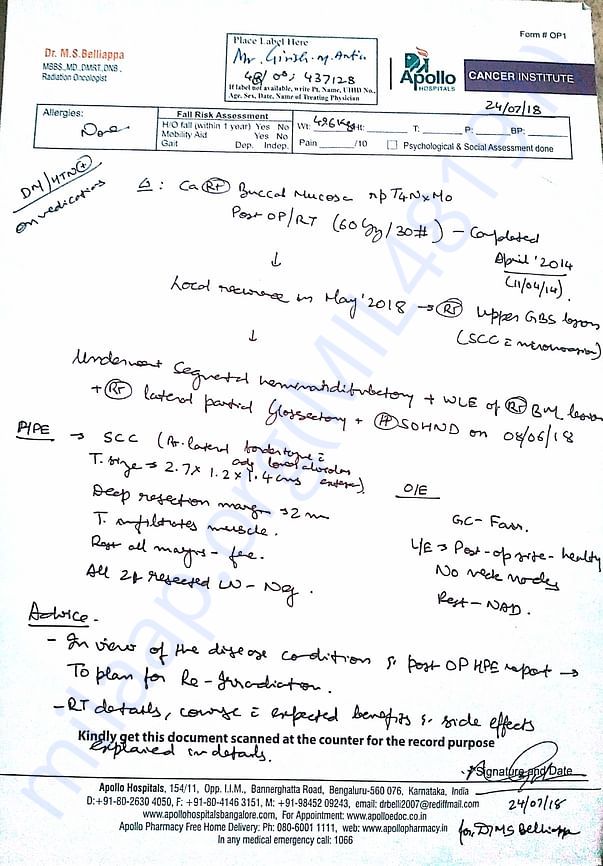 Form # OP1
Dr. M.S.Belliappa
MBBS., MD.,DMRT.,DNB.,
Radiation Oncologist
Place Label Here
Mr. Girish.M.
48/ 437128
If label not available, write Pt. Name, UHID No.,
Age, Sex, Date, Name of Treating Physician
Apollo
HOSPITALS
CANCER INSTITUTE
24/07/18
Allergies:
None
Fall Risk Assessment
H/O fall (within 1 year) Yes No
Mobility Aid Yes No
Gait Dep. Indep.
Wt: Ht: T: P: BP:
Pain /10 Psychological & Social Assessment done
DM/HTN (+)
on medications
Δ: Ca (Rt) Buccal Mucosa rpT4NxM0
Post OP/RT (60Gy/30#) – Completed
April '2014
(11/04/14).
↓
Local recurrence in May '2018 → (Rt) Upper GBS lesion
(SCC
↓
Underwent Segmental hemimandibulectomy + WLE of (Rt) BM lesion
+ (Rt) lateral partial Glossectomy + SOHND on 08/06/18
HPE → SCC (Rt. lateral border tongue
T. size → 2.7 x 1.2 x 1.4 cms
Deep resection margin → 2 mm
T. infiltrates muscle.
Rest all margins – free.
All 24 resected LN – Neg.
O/E
GC – Fair.
L/E → Post-op site – healthy
No neck nodes
Rest – NAD.
Advice -
- In view of the disease condition & post OP HPE report →
To plan for Re-Irradiation.
- RT details, course c̄ expected benefits & side effects
Kindly get this document scanned at the counter for the record purpose
explained in details.
Signature and Date
24/07/18
for Dr MS Belliappa
Apollo Hospitals, 154/11, Opp. I.I.M., Bannerghatta Road, Bengaluru-560 076, Karnataka, India
D:+91-80-2630 4050, F: +91-80-4146 3151, M: +91-98452 09243, email: drbelli2007@rediffmail.com
www.apollohospitalsbangalore.com, For Appointment: www.apolloedoc.co.in
Apollo Pharmacy Free Home Delivery: Ph: 080-6001 1111, web: www.apollopharmacy.in
In any medical emergency call: 1066